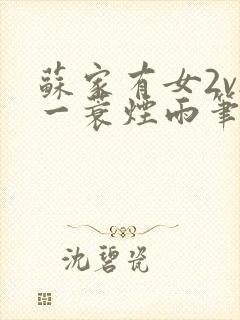 蘇家有女2v
一蓑煙雨筆
沈碧瓷